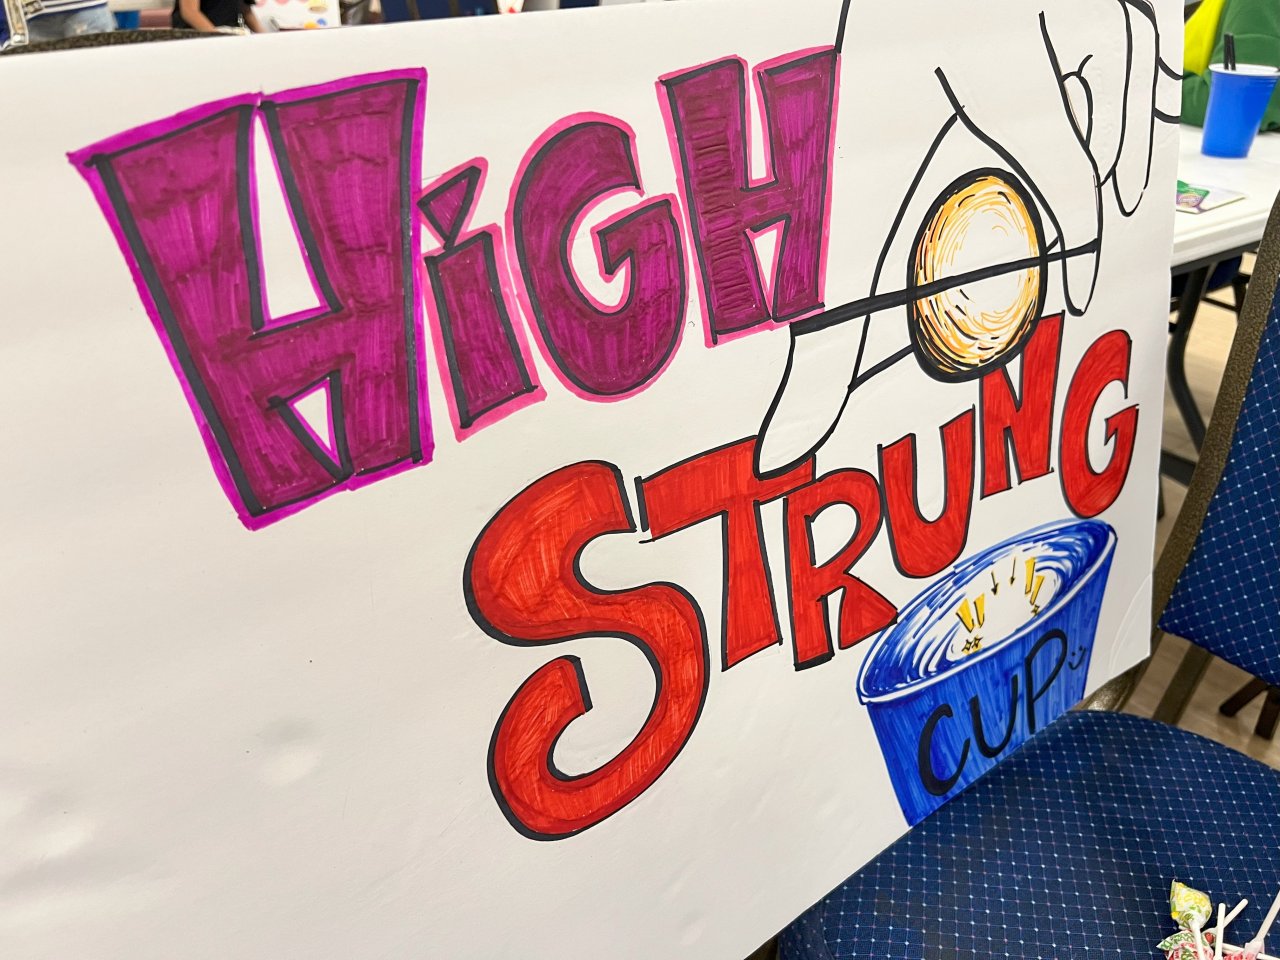 HiGH
STRUNG
CUP